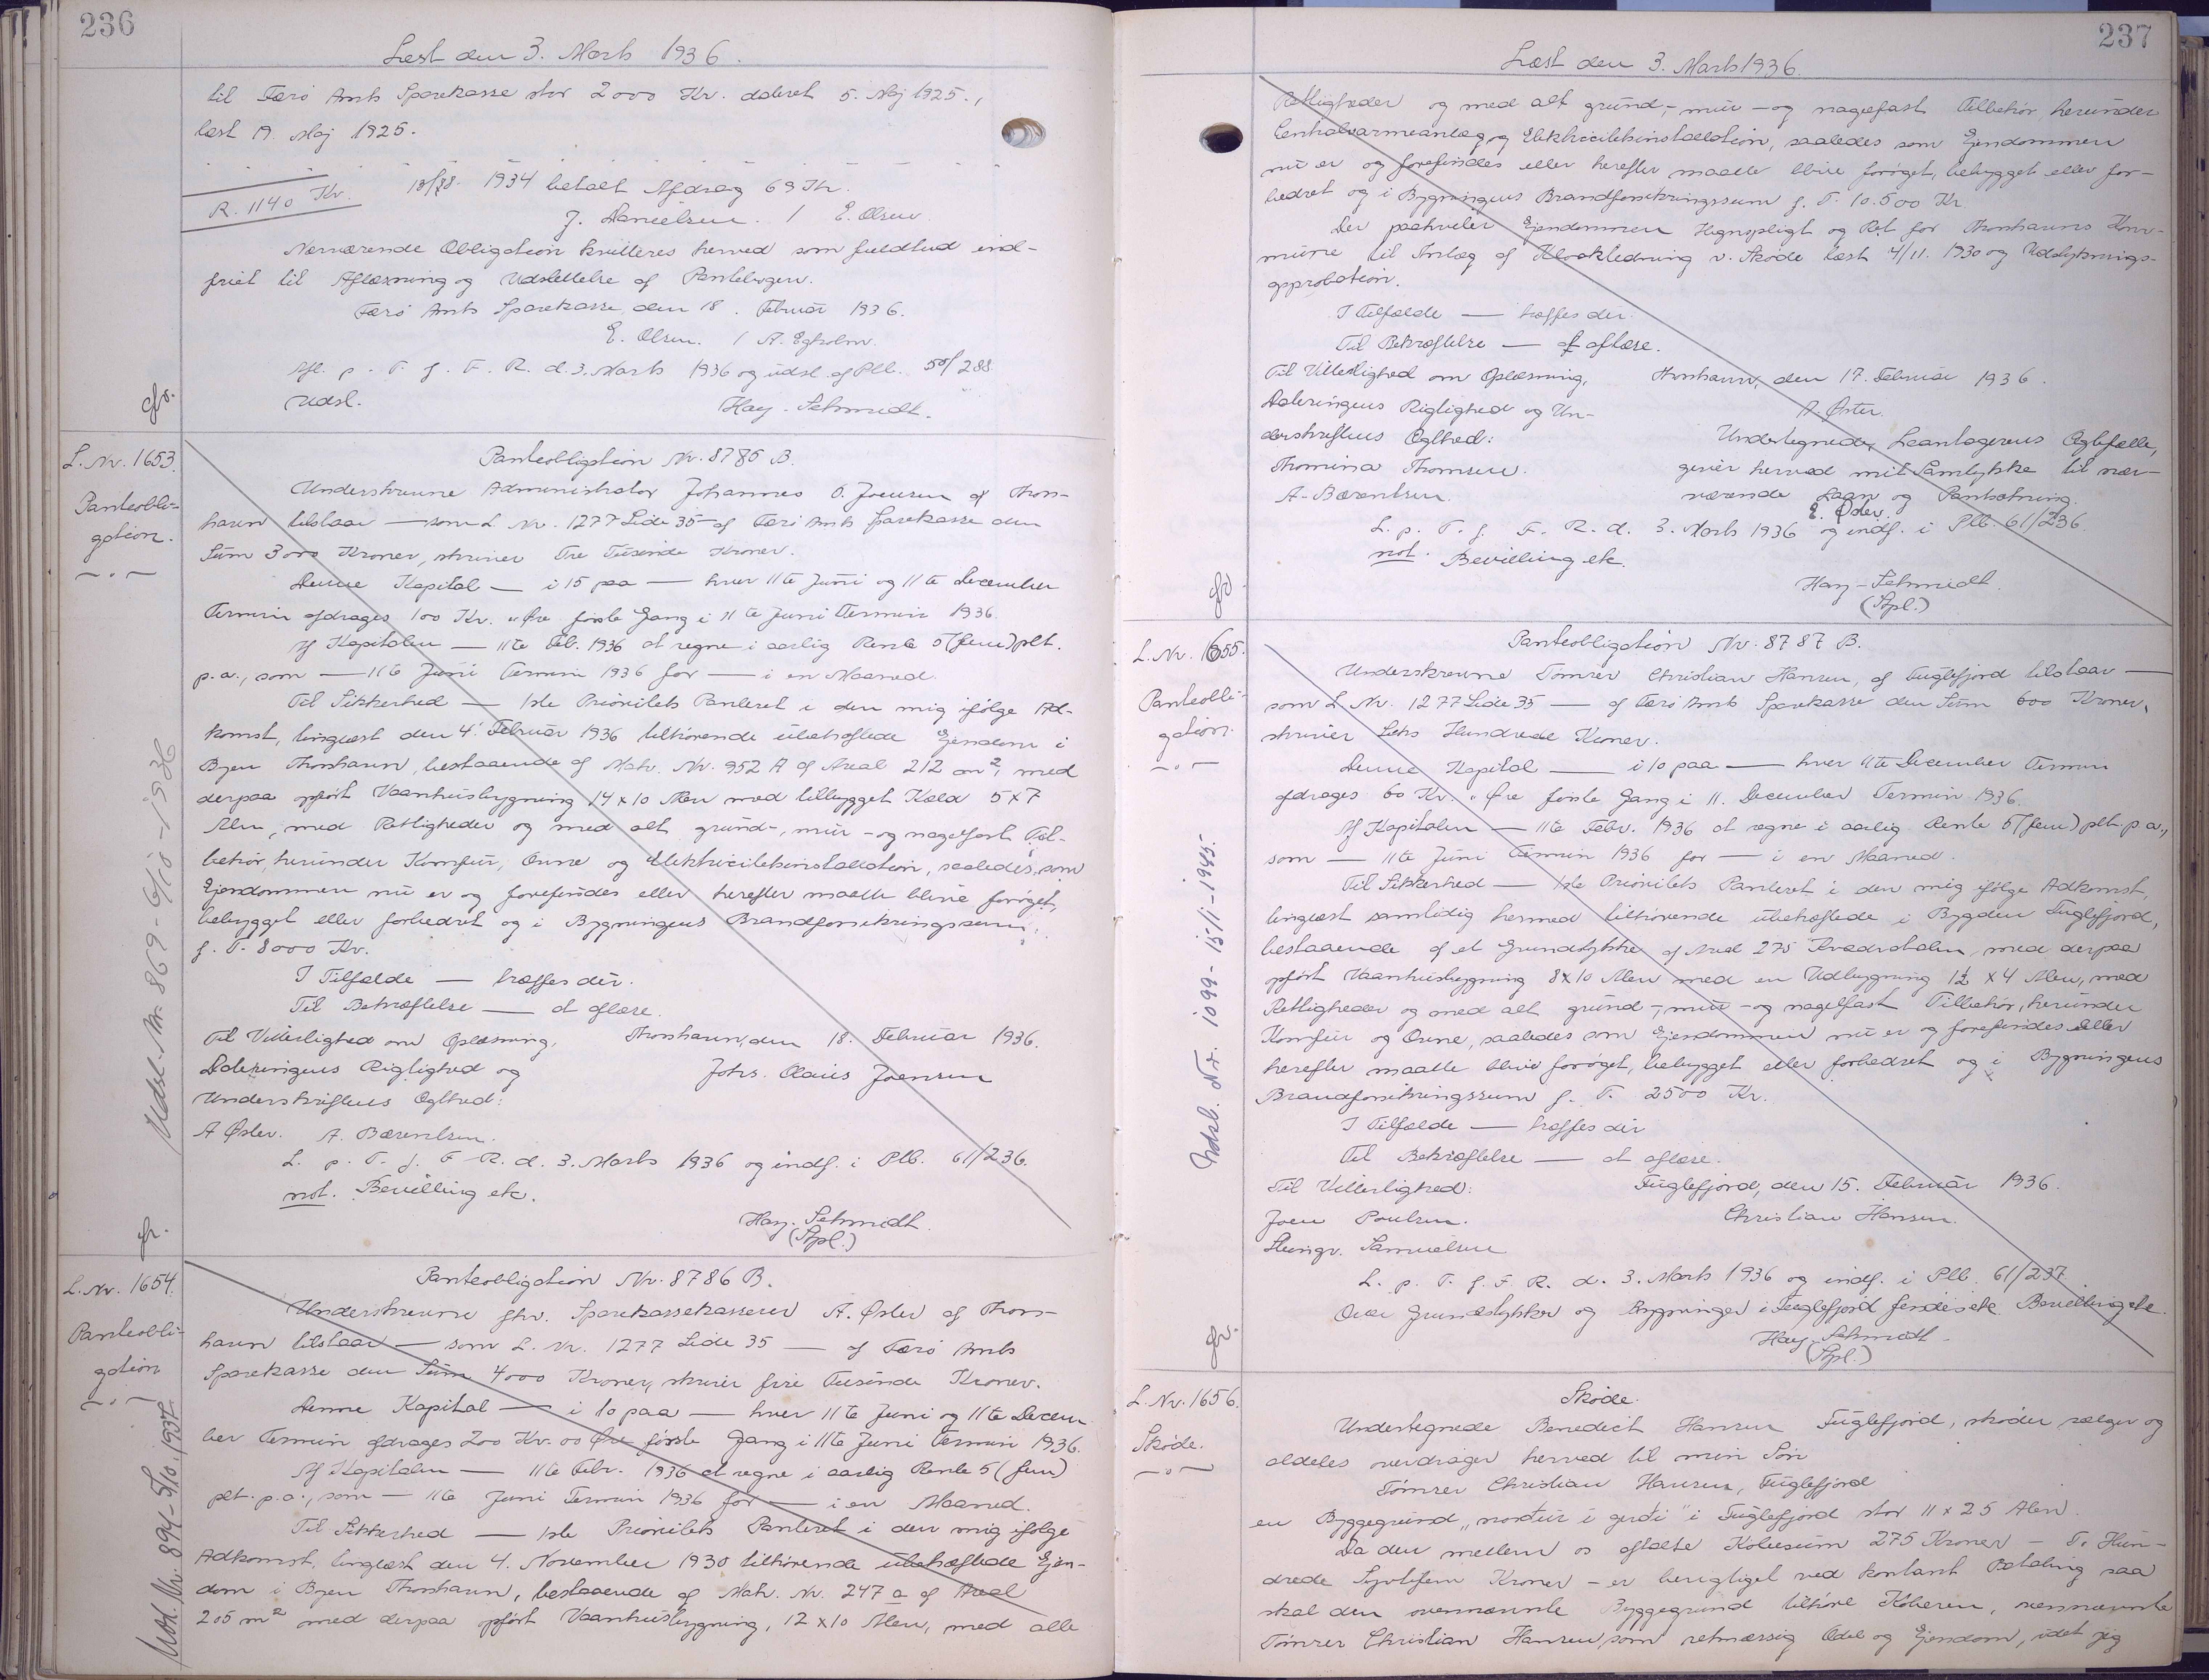 236
Læst den 3. Marts 1936.
til Færö Amts Sparekasse stor 2000 Kr. dateret 5. Maj 1925.,
læst 19. Maj 1925.
R. 1140 Kr.
1934 betalt Afdrag 69 Kr.
J. Danielsen. / E. Olsen
Nærværende Obligation kvitteres herved som fuldtud ind-
friet til Aflæsning og Udslettelse af Pantebogen.
Færö Amts Sparekasse, den 18. Februar 1936.
E. Olsen. / A. Egholm.
Afl. p. T. f. F. R. d. 3. Marts 1936 og udsl. af Plb. 50/288
Udsl.
Hay-Schmidt.
L. Nr. 1653.
Panteobli-
gation.
Udsl. Nr. 869 - 6/10 - 1936
Panteobligation Nr. 8785 B.
Underskrevne Administrator Johannes O. Joensen af Thors-
havn tilstaar — som L Nr. 1277 Side 35 — af Færö Amts Sparekasse den
Sum 3000 Kroner, skriver Tre Tusinde Kroner.
Denne Kapital — i 15 paa — hver 11te Juni og 11te December
Termin afdrages 100 Kr. " Øre første Gang i 11te Juni Termin 1936.
Af Kapitalen — 11te Feb. 1936 at regne i aarlig Rente 5 (fem) pCt.
p.a., som — 11te Juni Termin 1936 for — i en Maaned.
Til Sikkerhed — 1ste Prioritets Panteret i den mig ifölge Ad-
komst, tinglæst den 4. Februar 1936 tilhörende übehæftede Ejendom i
Byen Thorshavn, bestaaende af Matr. Nr. 952 A af Areal 212 m², med
derpaa opfört Vaanhusbygning 14 x 10 Alen med tilbygget Kæld 5 x 7
Alen, med Rettigheder og med alt grund-, mur- og nagelfast Til-
behör, herunder Komfur, Ovne og Elektricitetsinstallation, saaledes, som
Ejendommen nu er og forefindes eller herefter maatte blive foröget,
bebygget eller forbedret og i Bygningens Brandforsikringssum
f. T. 8000 Kr.
I Tilfælde — træffes der.
Til Bekræftelse — at aflæse.
Til Vitterlighed om Oplæsning,
Thorshavn, den 18. Februar 1936.
Dateringens Rigtighed og
Johs. Olaius Joensen
Underskriftens Ægthed:
A Øster. A. Bærentsen.
L. p. T. f. F. R. d. 3. Marts 1936 og indf. i Plb. 61/236.
not. Bevilling etc.
Hay-Schmidt.
(Spl.)
L. Nr. 1654.
Panteobli-
gation
Udsl. Nr. 894 - 5/10. 1937.
Panteobligation Nr. 8786 B.
Underskrevne fhv. Sparekassekasserer A. Øster af Thors-
havn tilstaar — som L. Nr. 1277 Side 35 — af Færö Amts
Sparekasse den Sum 4000 Kroner, skriver fire Tusinde Kroner.
Denne Kapital — i 10 paa — hver 11te Juni og 11te Decem
ber Termin afdrages 200 Kr. 00 Øre første Gang i 11te Juni Termin 1936.
Af Kapitalen — 11te Febr. 1936 at regne i aarlig Rente 5 (fem)
pCt. p.a., som — 11te Juni Termin 1936 for — i en Maaned.
Til Sikkerhed — 1ste Prioritets Panteret i den mig ifölge
Adkomst, tinglæst den 4. November 1930 tilhörende übehæftede Ejen-
dom i Byen Thorshavn, bestaaende af Matr. Nr. 247 a af Areal
205 m² med derpaa opfört Vaanhusbygning, 12 x 10 Alen, med alle
237
Læst den 3. Marts 1936.
Rettigheder og med alt grund-, mur- og nagelfast Tilbehör, herunder
Centralvarmeanlæg og Elektricitetsinstallation, saaledes som Ejendommen
nu er og forefindes eller herefter maatte blive foröget, bebygget eller for-
bedret og i Bygningens Brandforsikringssum f. T. 10.500 Kr
Der paahviler Ejendommen Hegnspligt og Ret for Thorshavns Kom-
mune til Anlæg af Kloakledning v. Skøde læst 4/11. 1930 og Udstyknings-
approbation.
I Tilfælde — træffes der.
Til Bekræftelse — at aflæse.
Til Vitterlighed om Oplæsning,
Thorshavn, den 17. Februar 1936.
Dateringens Rigtighed og Un-
A. Øster.
derskriftens Ægthed:
Undertegnede, Laantagerens Ægtefælle,
Thomina Thomsen.
giver herved mit Samtykke til nær-
A. Bærentsen.
værende Laan og Pantsætning.
E. Øster.
L. p. T. f. F. R. d. 3. Marts 1936 og indf. i Plb. 61/236.
not. Bevilling etc.
Hay-Schmidt
(Spl.)
L. Nr. 1655.
Panteobli-
gation.
Udsl. Nr. 1099 - 15/1 - 1945.
Panteobligation Nr. 8787 B.
Underskrevne Tömrer Christian Hansen, af Fuglefjord tilstaar —
som L Nr. 1277 Side 35 — af Færö Amts Sparekasse den Sum 600 Kroner,
skriver Seks Hundrede Kroner.
Denne Kapital — i 10 paa — hver 11te December Termin
afdrages 60 Kr. " Øre første Gang i 11. December Termin 1936.
Af Kapitalen — 11te Febr. 1936 at regne i aarlig Rente 5 (fem) pCt. p.a.,
som — 11te Juni Termin 1936 for — i en Maaned.
Til Sikkerhed — 1ste Prioritets Panteret i den mig ifölge Adkomst,
tinglæst samtidig hermed tilhörende übehæftede i Bygden Fuglefjord,
bestaaende af et Grundstykke af Areal 275 Kvadratalen, med derpaa
opfört Vaanhusbygning 8 x 10 Alen med en Udbygning 1½ x 4 Alen, med
Rettigheder og med alt grund-, mur- og nagelfast Tilbehör, herunder
Komfur og Ovne, saaledes som Ejendommen nu er og forefindes eller
herefter maatte blive foröget, bebygget eller forbedret og i Bygningens
Brandforsikringssum f. T. 2500 Kr.
I Tilfælde — træffes der
Til Bekræftelse — at aflæse.
Til Vitterlighed:
Fuglefjord, den 15. Februar 1936.
Joen Poulsen.
Christian Hansen.
Samuelsen
L. p. T. f. F. R. d. 3. Marts 1936 og indf. i Plb. 61/237
Over Grundstykker og Bygninger i Fuglefjord findes etc. Bevilling etc.
Hay-Schmidt.
(Spl.)
L. Nr. 1656.
Skøde.
Skøde.
Undertegnede Benedict Hansen Fuglefjord, skøder sælger og
aldeles overdrager herved til min Sön
Tömrer Christian Hansen, Fuglefjord
en Byggegrund „nordur i gerði" i Fuglefjord stor 11 x 25 Alen.
Da den mellem os aftalte Köbesum 275 Kroner — To Hun-
drede Syvtifem Kroner — er berigtiget ved kontant Betaling saa
skal den ovennævnte Byggegrund tilhöre Köberen, ovennævnte
Tömrer Christian Hansen, som retmæssig Odel og Ejendom, idet jeg